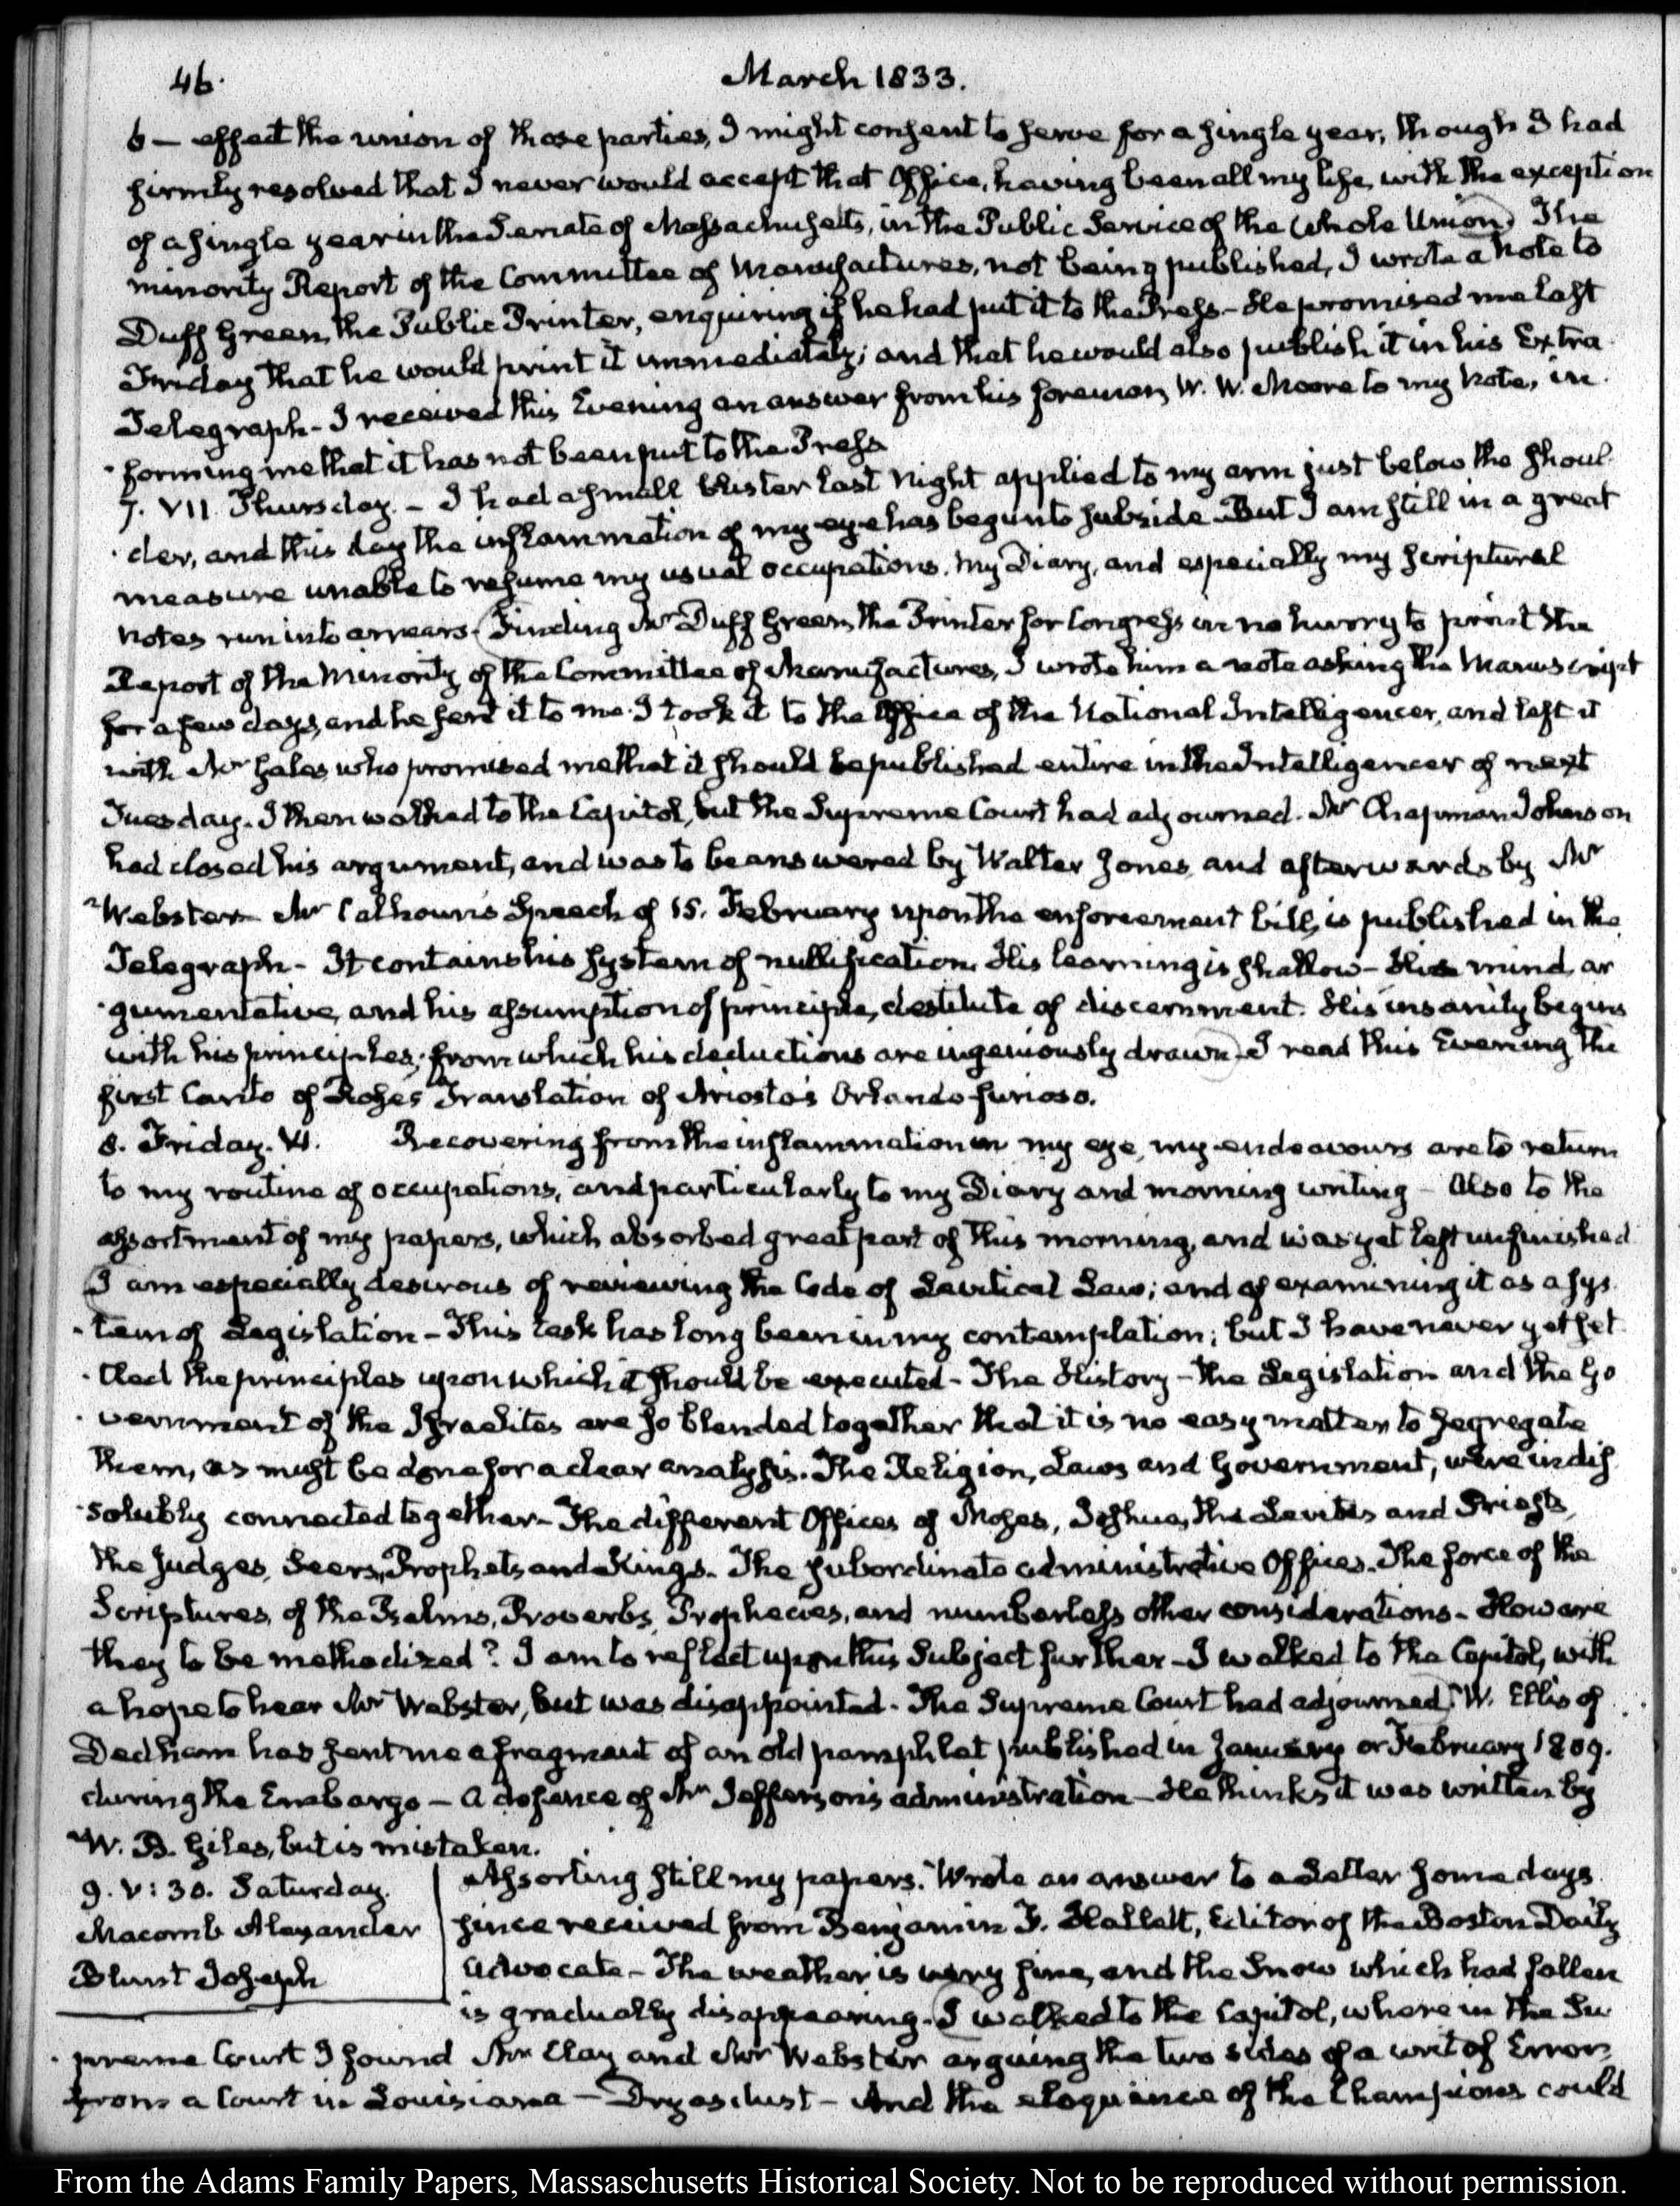 46.
March 1833.
6 — effect the union of those parties, I might consent to serve for a single year, though I had
firmly resolved that I never would accept that Office, having been all my life, with the exception
of a single year in the Senate of Massachusetts, in the Public Service of the whole Union. The
minority Report of the Committee of Manufactures, not being published, I wrote a note to
Duff Green, the Public Printer, enquiring if he had put it to the Press - He promised me last
Friday that he would print it immediately; and that he would also publish it in his Extra
Telegraph - I received this Evening an answer from his foreman, W. W. Moore to my Note, in
forming me that it has not been put to the Press
7. VII. Thursday. - I had a small blister last night applied to my arm just below the shoul
der, and this day the inflammation of my eye has begun to subside. But I am still in a great
measure unable to resume my usual occupations. My Diary, and especially my scriptural
notes run into arrears. Finding Mr Duff Green, the Printer for Congress in no hurry to print the
Report of the Minority of the Committee of Manufactures, I wrote him a note asking the Manuscript
for a few days, and he sent it to me. I took it to the Office of the National Intelligencer, and left it
with Mr Gales who promised me that it should be published entire in the Intelligencer of next
Tuesday. I then walked to the Capitol, but the Supreme Court had adjourned. Mr Chapman Johnson
had closed his argument, and was to be answered by Walter Jones, and afterwards by Mr
Webster - Mr Calhoun's Speech of 15. February upon the enforcement bill, is published in the
Telegraph - It contains his system of nullification. His learning is shallow - His mind ar
gumentative, and his assumption of principle, destitute of discernment. His insanity begins
with his principles; from which his deductions are ingeniously drawn. I read this Evening the
first Canto of Rose's Translation of Ariosto's Orlando furioso.
8. Friday. VI. Recovering from the inflammation in my eye, my endeavours are to return
to my routine of occupations, and particularly to my Diary and morning writing - Also to the
assortment of my papers, which absorbed great part of this morning, and was yet left unfinished
I am especially desirous of reviewing the Code of Levitical Law; and of examining it as a sys
tem of Legislation - This task has long been in my contemplation; but I have never yet set
tled the principles upon which it should be executed - The History - the Legislation and the Go
vernment of the Israelites are so blended together that it is no easy matter to segregate
them, as must be done for a clear analysis. The Religion, Laws and Government, were indis
solubly connected together - The different Offices of Moses, Joshua, the Levites and Priests,
the Judges, Seers, Prophets and Kings. The subordinate administrative Offices. The force of the
Scriptures, of the Psalms, Proverbs, Prophecies, and numberless other considerations - How are
they to be methodized? I am to reflect upon this Subject further - I walked to the Capitol, with
a hope to hear Mr Webster, but was disappointed. The Supreme Court had adjourned. W. Ellis of
Dedham has sent me a fragment of an old pamphlet published in January or February 1809.
during the Embargo - a defence of Mr Jefferson's administration - He thinks it was written by
W. B. Giles, but is mistaken.
9. V:30. Saturday.
Macomb Alexander
Blunt Joseph
Assorting still my papers. Wrote an answer to a Letter some days
since received from Benjamin F. Hallett, Editor of the Boston Daily
Advocate - The weather is very fine, and the Snow which had fallen
is gradually disappearing. I walked to the Capitol, where in the Su
preme Court I found Mr Clay and Mr Webster arguing the two sides of a writ of Error
from a Court in Louisiana - Dry as dust - And the eloquence of the Champions could
From the Adams Family Papers, Massachusetts Historical Society. Not to be reproduced without permission.